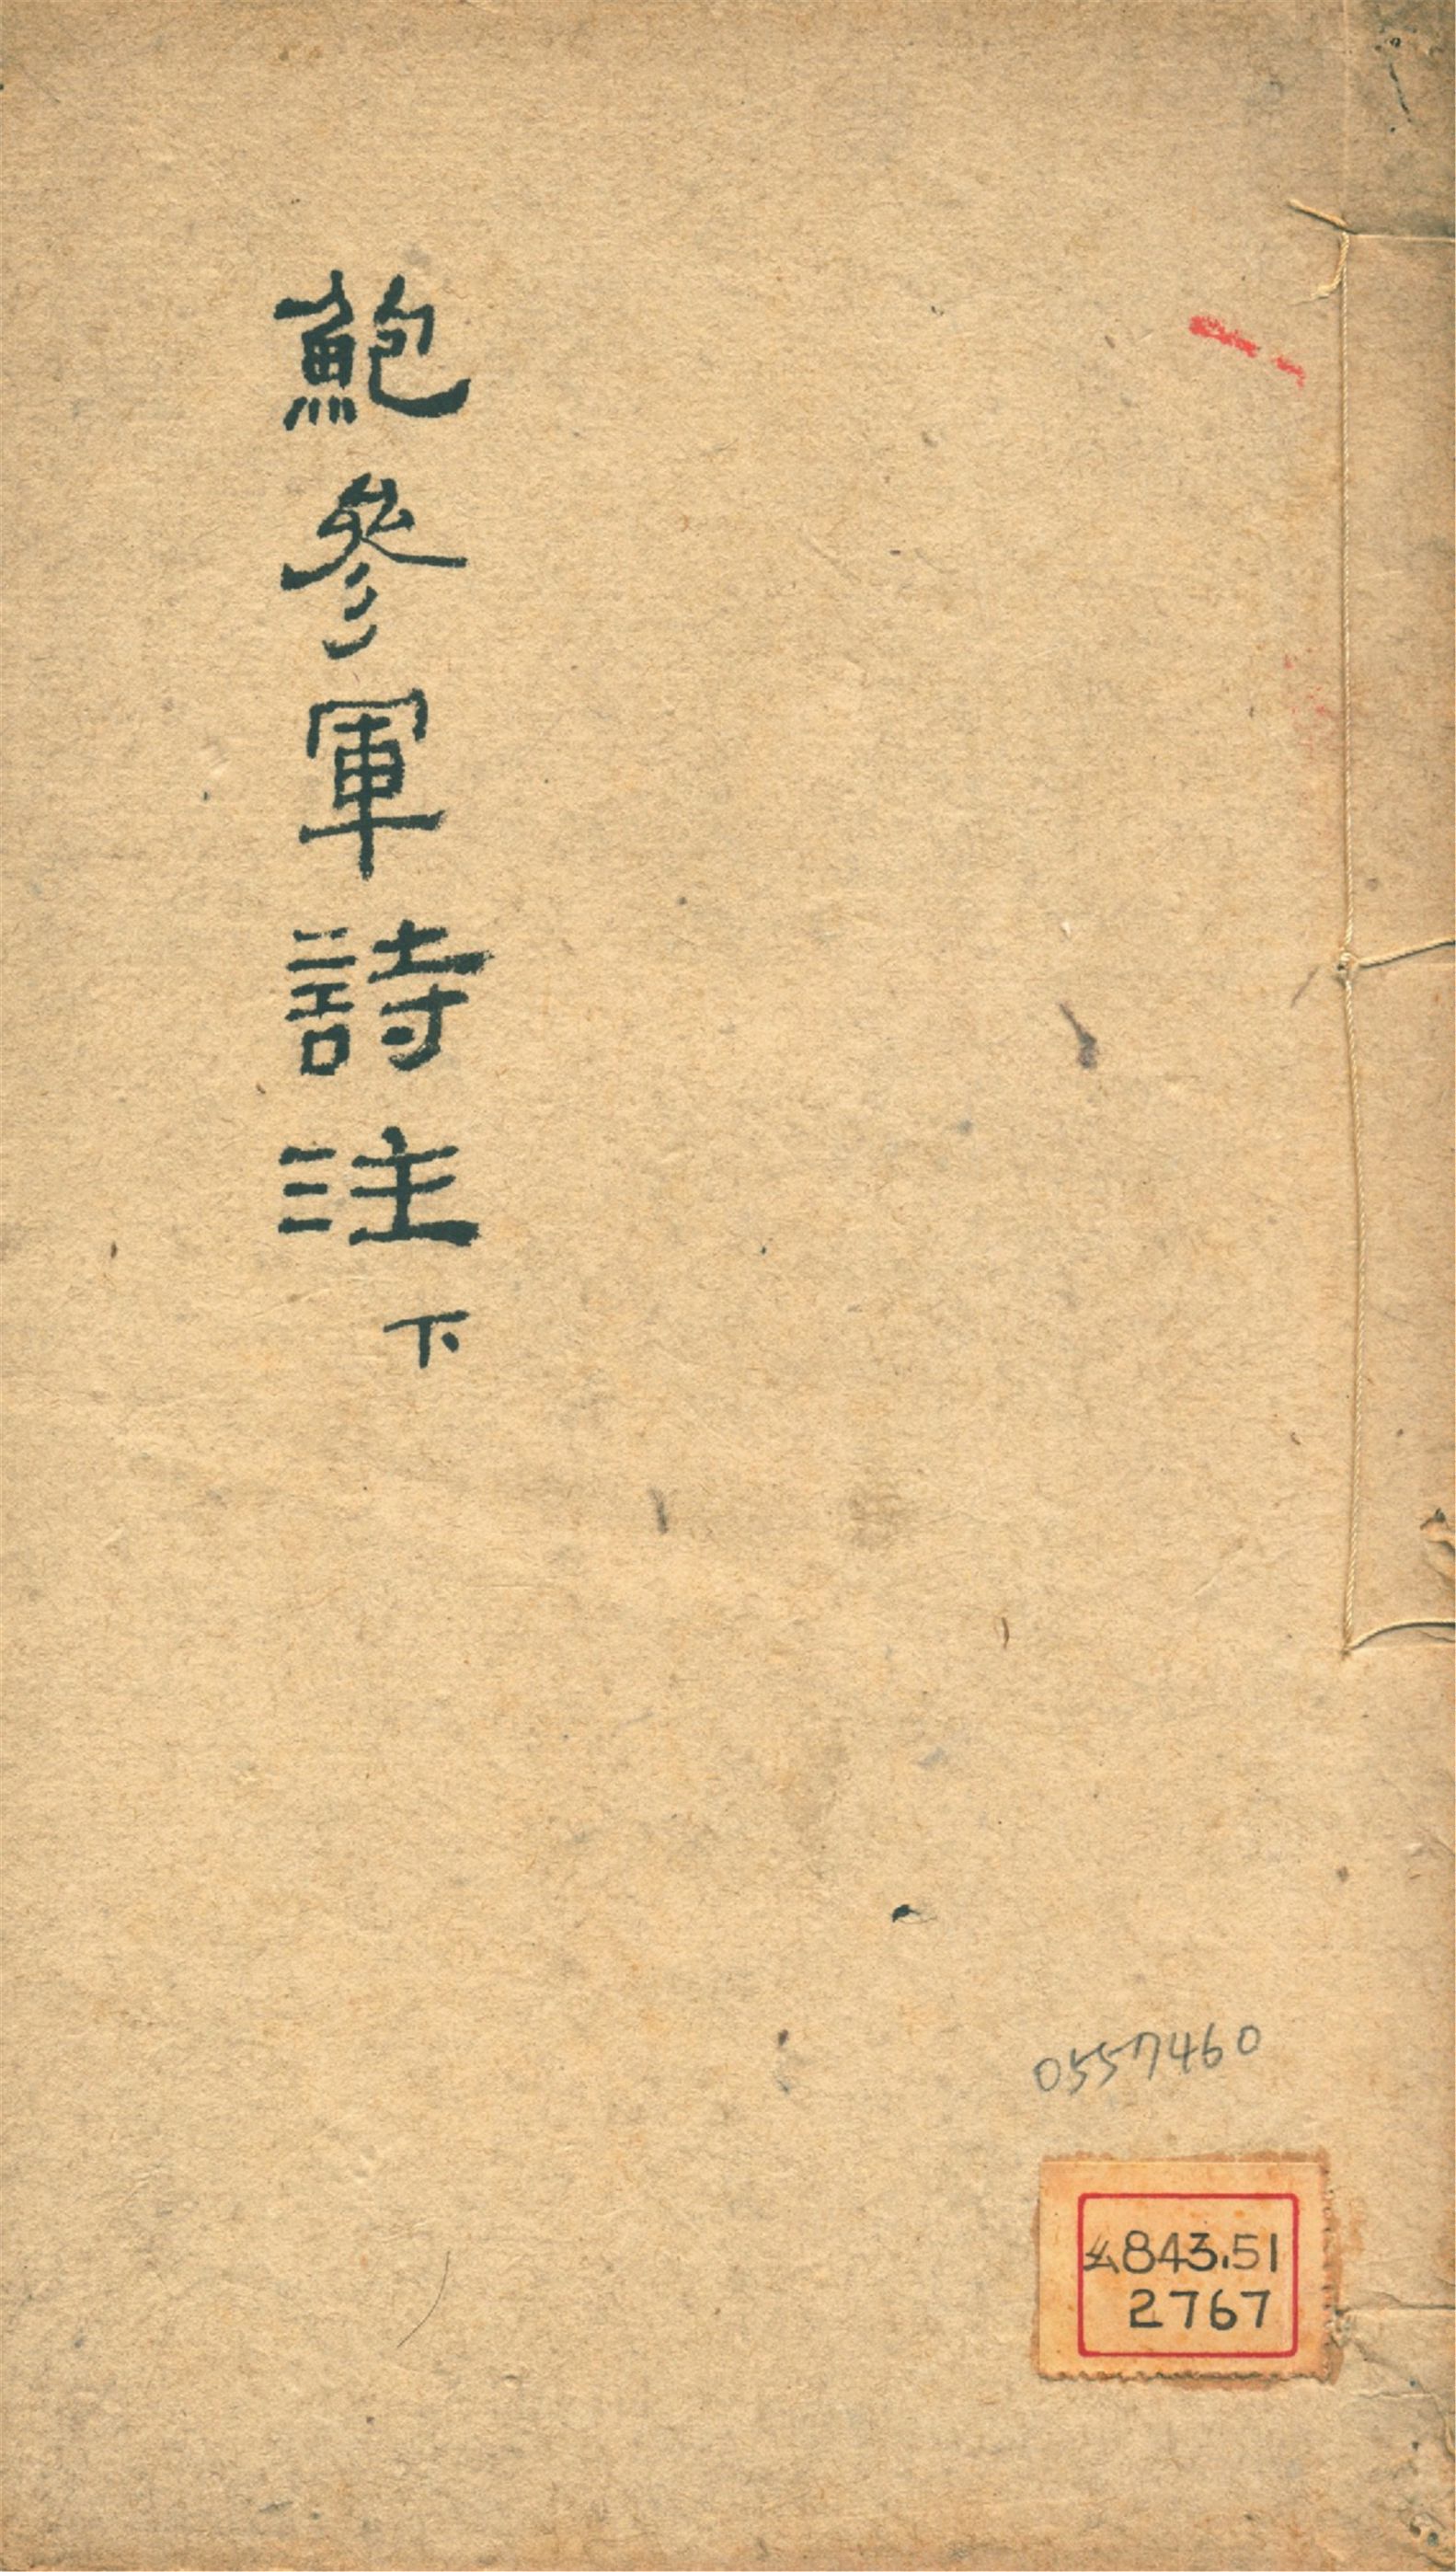 鮑參軍詩注 下
0557460
843.51
2767